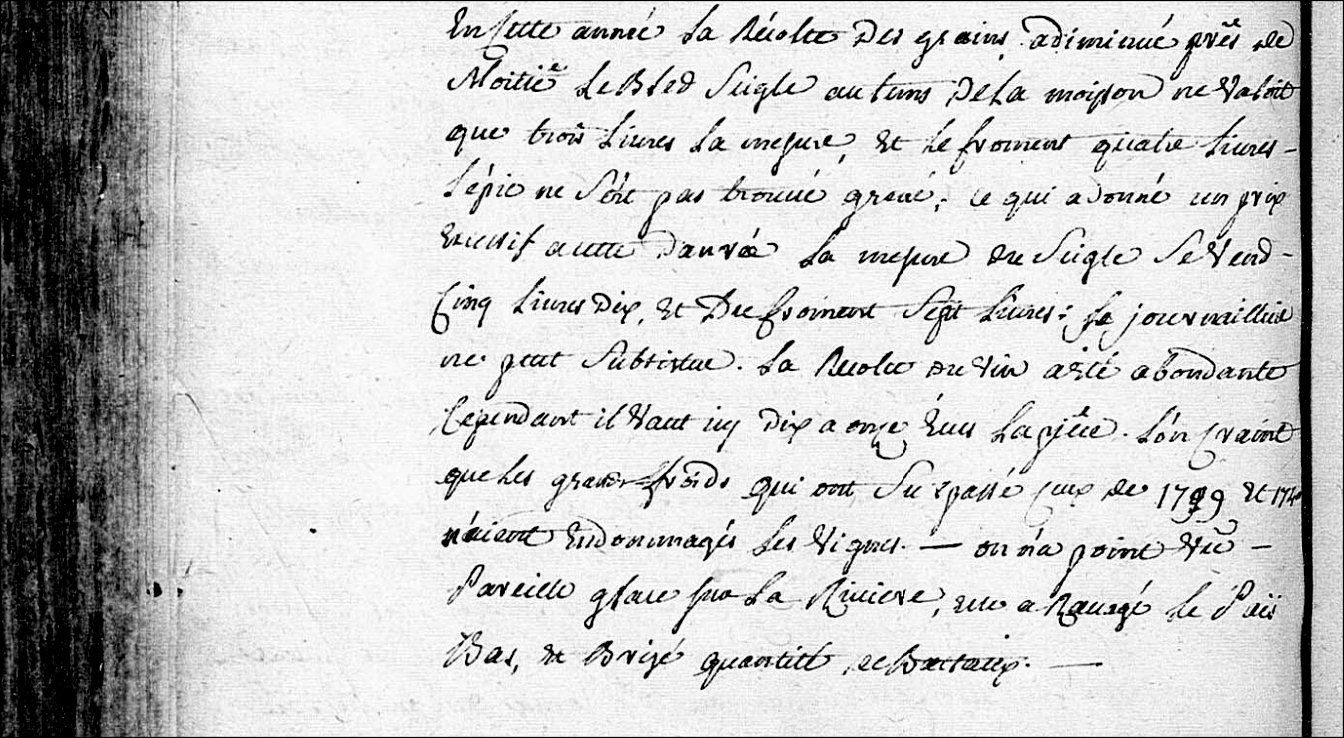 En cette année la Récolte Des grains a diminué prés de
Moitié. Le Bled Seigle au tems De la moisson ne Valoit
que trois Livres la mesure, et le froment quatre Livres -
L'épic ne s'ést pas trouvé grené, ce qui a donné un prix
Excessif a cette Danrée La mesure du Seigle Se Vend -
Cinq Livres Dix, et Du froment Sept Livres: le journaillier
ne peut Subsister. La Récolte du Vin a été abondante
Cependant il Vaut icy Dix a onze Ecus La piéce. L'on Craint
que Les grands froids qui ont Surpassé Ceux de 1709 et 174
n'aient Endommagés Les Vignes. — on n'a point Vû -
Pareille glace sur La Riviere, elle a Ravagé Le Païs
Bas, et Brizé quantité de Batteaux. —